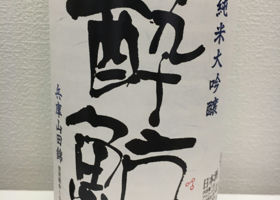 純米大吟醸
酔鯨
兵庫山田錦
日本酒